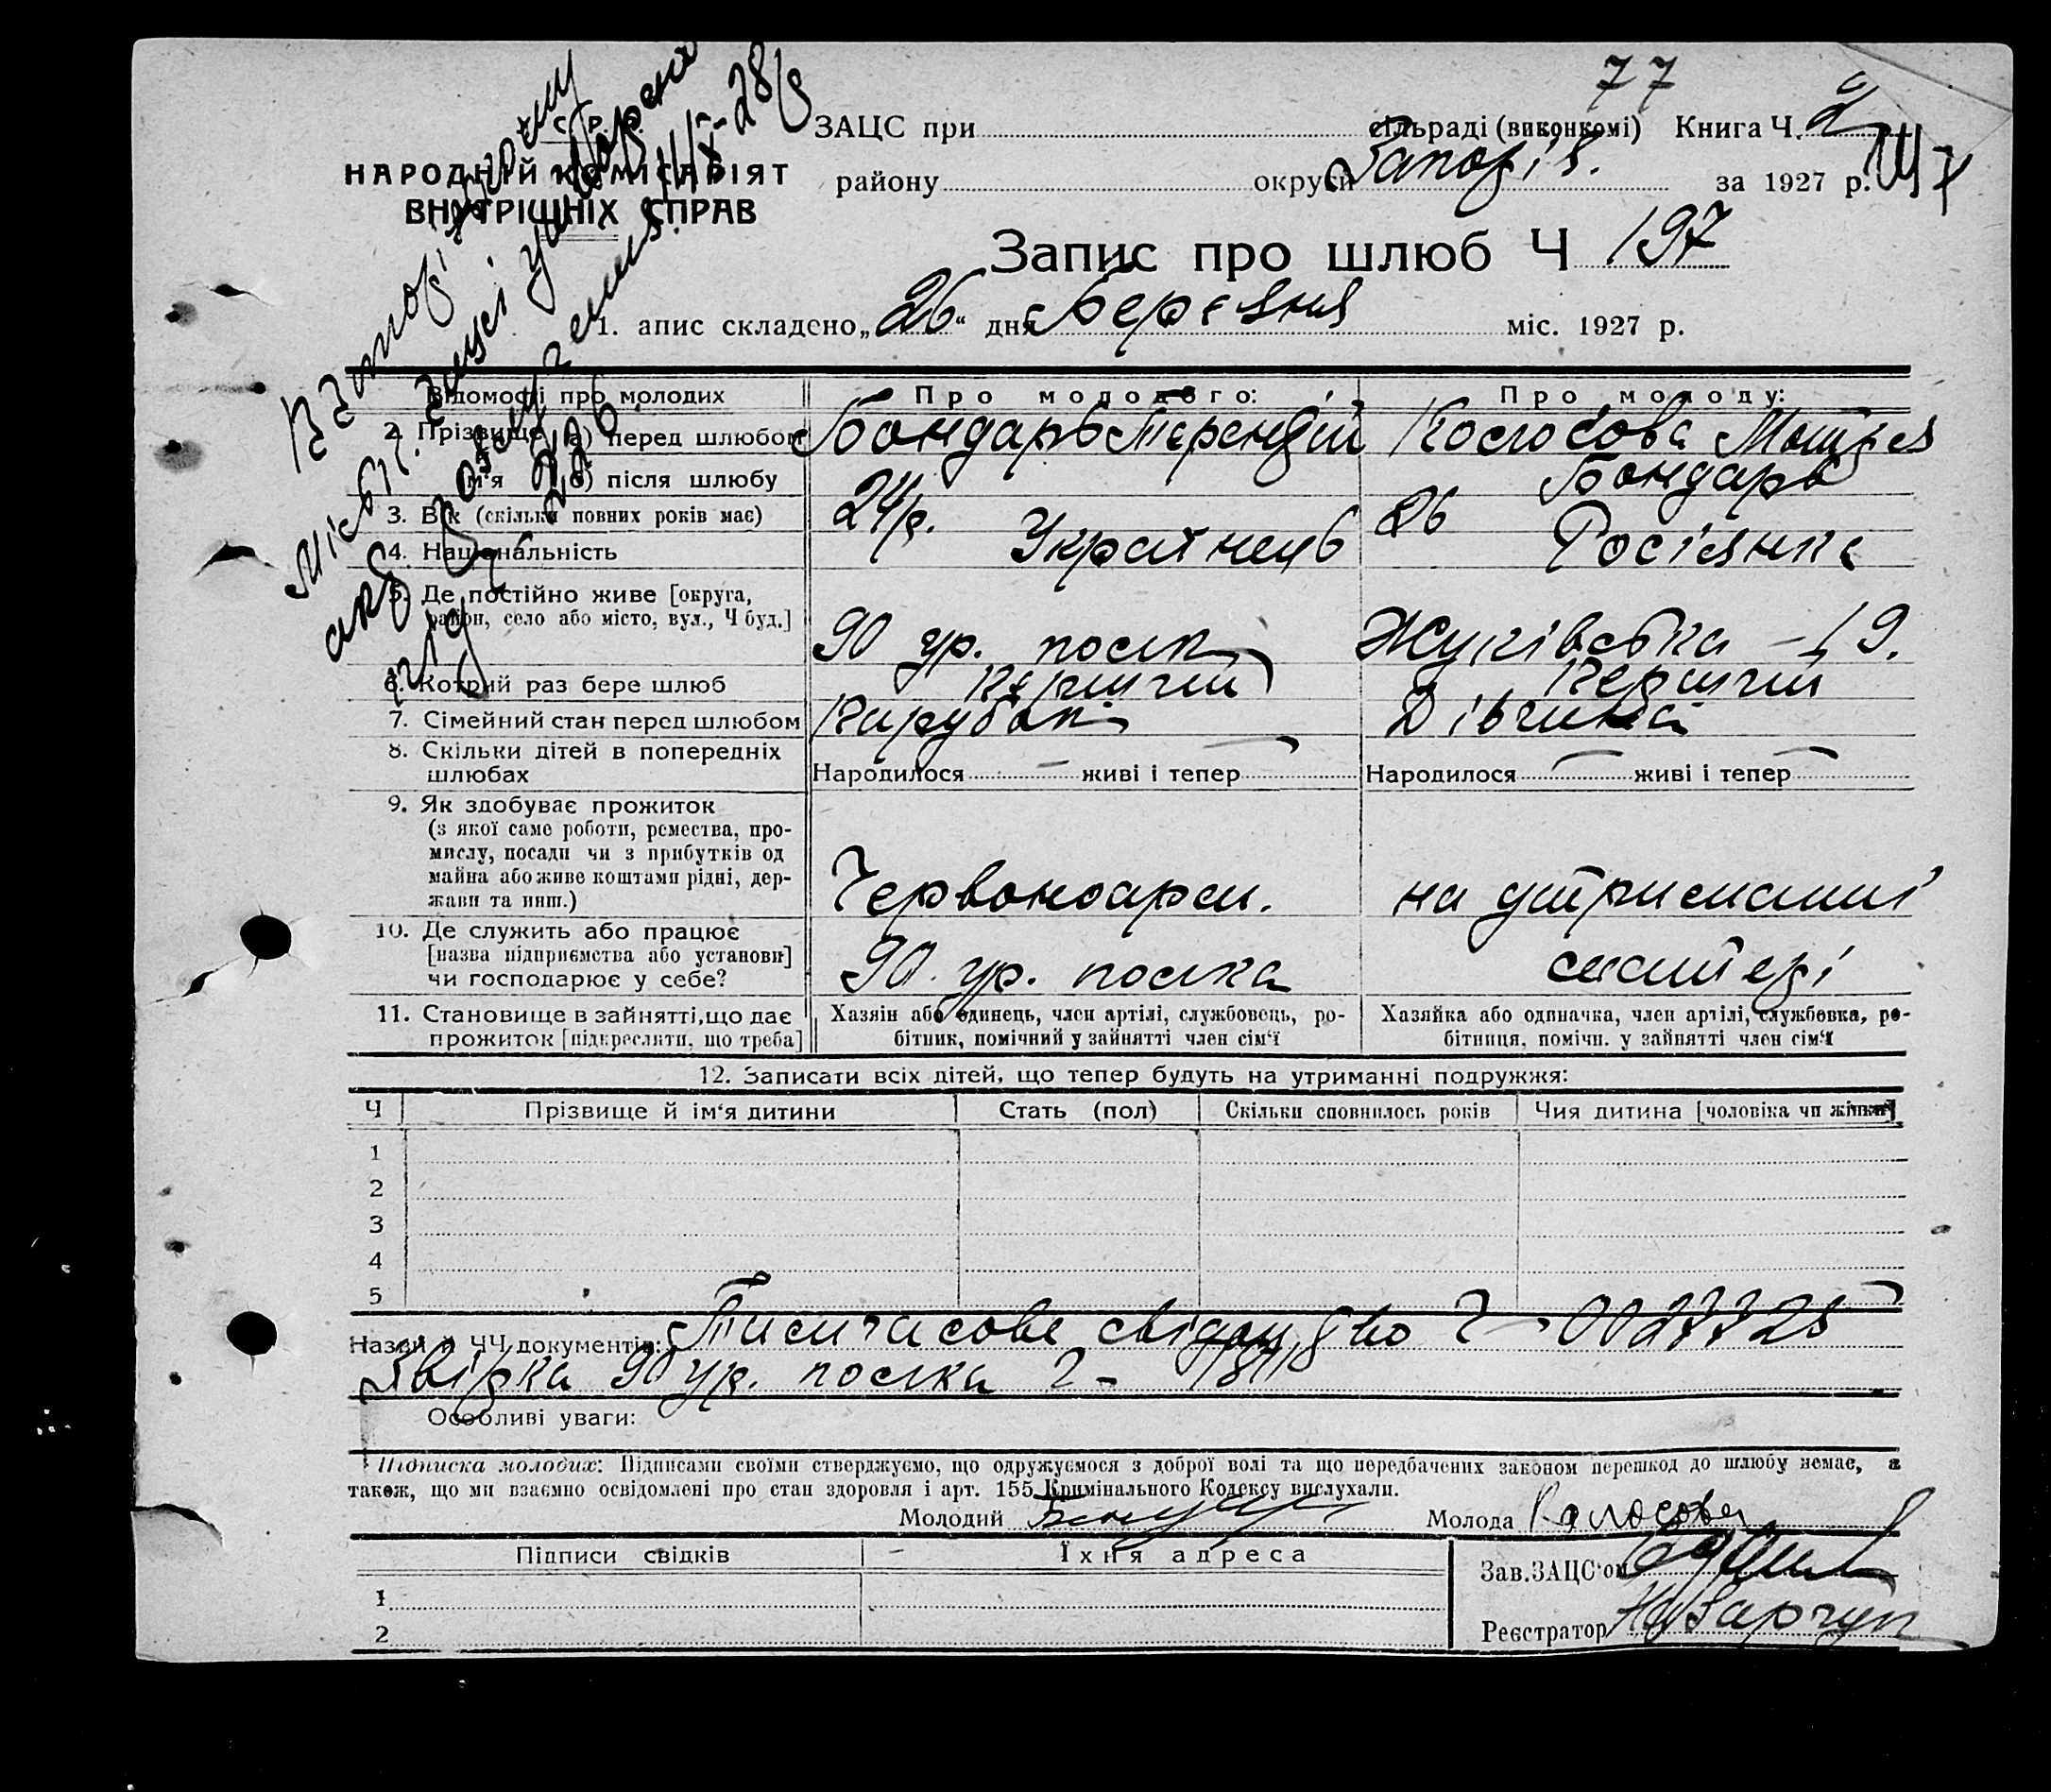 77
У.С.Р.Р.
НАРОДНІЙ КОМІСАРІЯТ
ВНУТРІШНІХ СПРАВ
ЗАЦС при сільраді (виконкомі) Книга Ч. 2
району округи Запоріз. за 1927 р.
Запис про шлюб Ч 197
1. апис складено „26“ дня Березня міс. 1927 р.
Відомості про молодих
Про молодого:
Про молоду:
2. Прізвище а) перед шлюбом
Бондарь Терендій
Колосова Мотря
ім'я б) після шлюбу
Бондарь
3. Вік (скільки повних років має)
24 р.
26
4. Національність
Українець
Росіянка
5. Де постійно живе [округа,
район, село або місто, вул., Ч буд.]
90 ур. полк
Жуківська - 19.
6. Котрий раз бере шлюб
Перший
Перший
7. Сімейний стан перед шлюбом
Парубок
Дівчина
8. Скільки дітей в попередніх
шлюбах
Народилося — живі і тепер —
Народилося — живі і тепер —
9. Як здобуває прожиток
(з якої саме роботи, ремества, про-
мислу, посади чи з прибутків од
майна або живе коштами рідні, дер-
жави та инш.)
Червоноарм.
на утриманні
10. Де служить або працює
[назва підприємства або установи]
чи господарює у себе?
90 ур. полка
матері
11. Становище в зайнятті, що дає
прожиток [підкреслити, що треба]
Хазяін або одинець, член артілі, службовець, ро-
бітник, помічний у зайнятті член сім'ї
Хазяйка або одиначка, член артілі, службовка, ро-
бітниця, помічн. у зайнятті член сім'ї
12. Записати всіх дітей, що тепер будуть на утриманні подружжя:
Ч Прізвище й ім'я дитини Стать (пол) Скільки сповнилось років Чия дитина [чоловіка чи жінки]
1
2
3
4
5
Назви й ЧЧ документів: Тимчасове свідоцтво Ч - 0027725
Звірка 90 ур. полка Ч -
Особливі уваги:
Підписка молодих: Підписами своїми стверджуємо, що одружуємося з доброї волі та що передбачених законом перешкод до шлюбу немає, а
також, що ми взаємно освідомлені про стан здоровля і арт. 155 Кримінального Кодексу вислухали.
Молодий Молода Колосова
Підписи свідків Їхня адреса
Зав. ЗАЦС'ом
1
2
Реєстратор